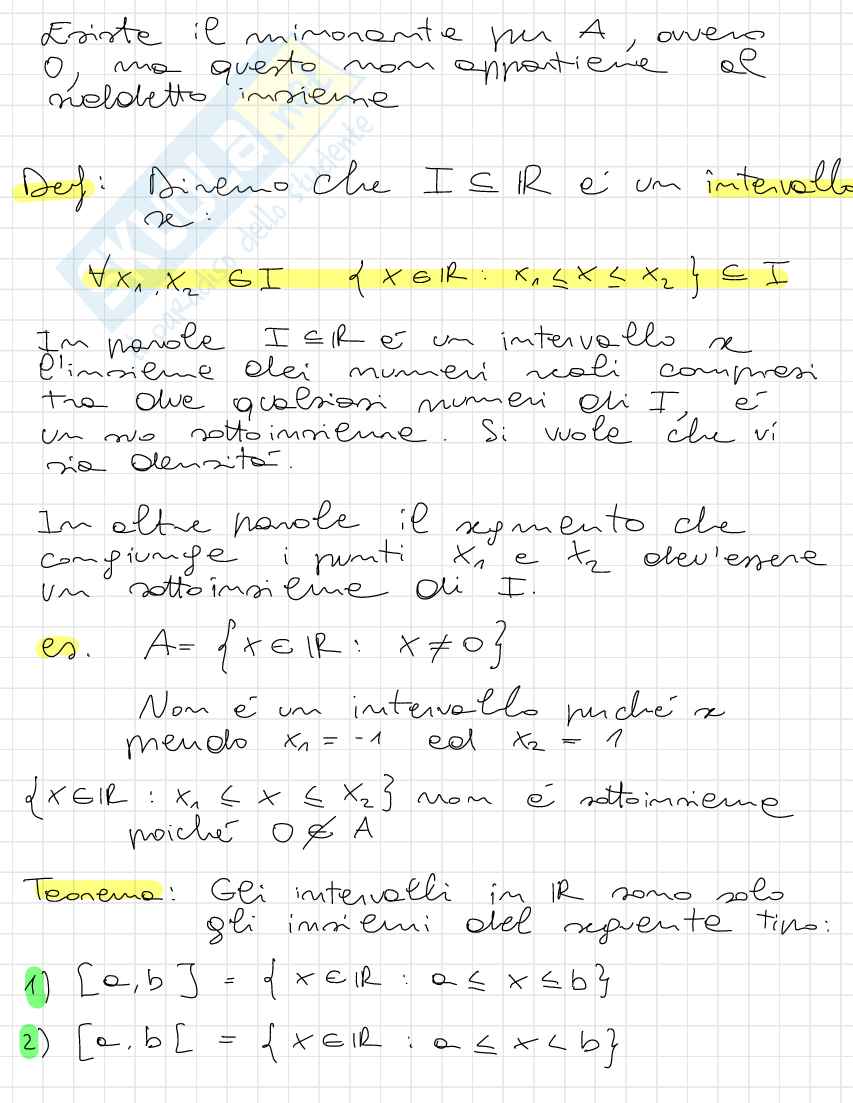 Esiste il minorante per A, ovvero
0, ma questo non appartiene al
suddetto insieme
SKUOLA.net
il paradiso dello studente
Def: Diremo che I ⊆ ℝ é un intervallo
se:
∀ x₁, x₂ ∈ I { x ∈ ℝ : x₁ ≤ x ≤ x₂ } ⊆ I
In parole I ⊆ ℝ é un intervallo se
l'insieme dei numeri reali compresi
tra due qualsiasi numeri di I, é
un suo sottoinsieme. Si vuole che vi
sia densitá.
In altre parole il segmento che
congiunge i punti x₁ e x₂ dev'essere
un sottoinsieme di I.
es. A = { x ∈ ℝ : x ≠ 0 }
Non é un intervallo perché se
prendo x₁ = -1 ed x₂ = 1
{ x ∈ ℝ : x₁ ≤ x ≤ x₂ } non é sottoinsieme
poiché 0 ∉ A
Teorema: Gli intervalli in ℝ sono solo
gli insiemi del seguente tipo:
1) [a, b] = { x ∈ ℝ : a ≤ x ≤ b }
2) [a, b[ = { x ∈ ℝ : a ≤ x < b }